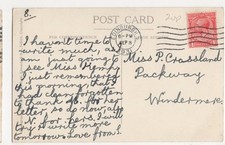 8.
POST CARD
I haven't time to
write much, as I
am just going to
see Miss Henry
I just remembered
this morning that I
had clean forgotten
to thank E. for her
letter, so do now, also
you for hers. I will
try & write more
tomorrow. Love from
EDINBURGH
Miss P. Crossland
Packway
Windermere